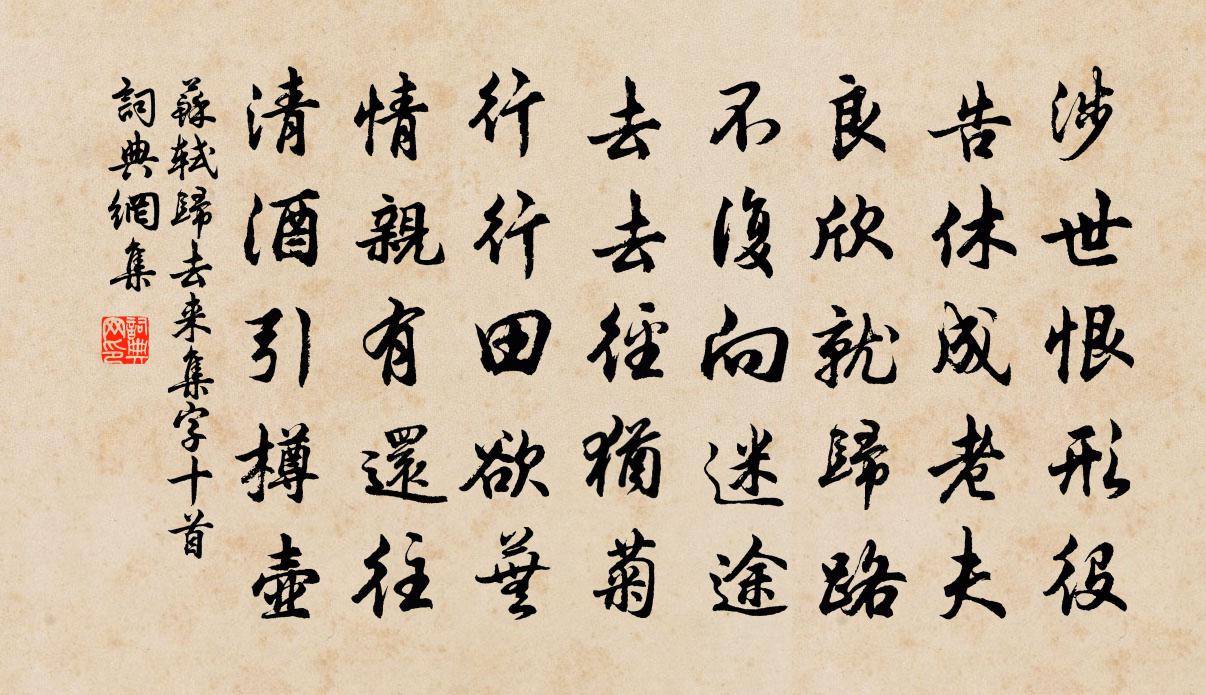 涉世恨形役
告休成老夫
良欣就歸路
不復向迷途
去去徑猶菊
行行田欲蕪
情親有還往
清酒引樽壺
蘇軾歸去来集字十首
詞典網集
詞典网印